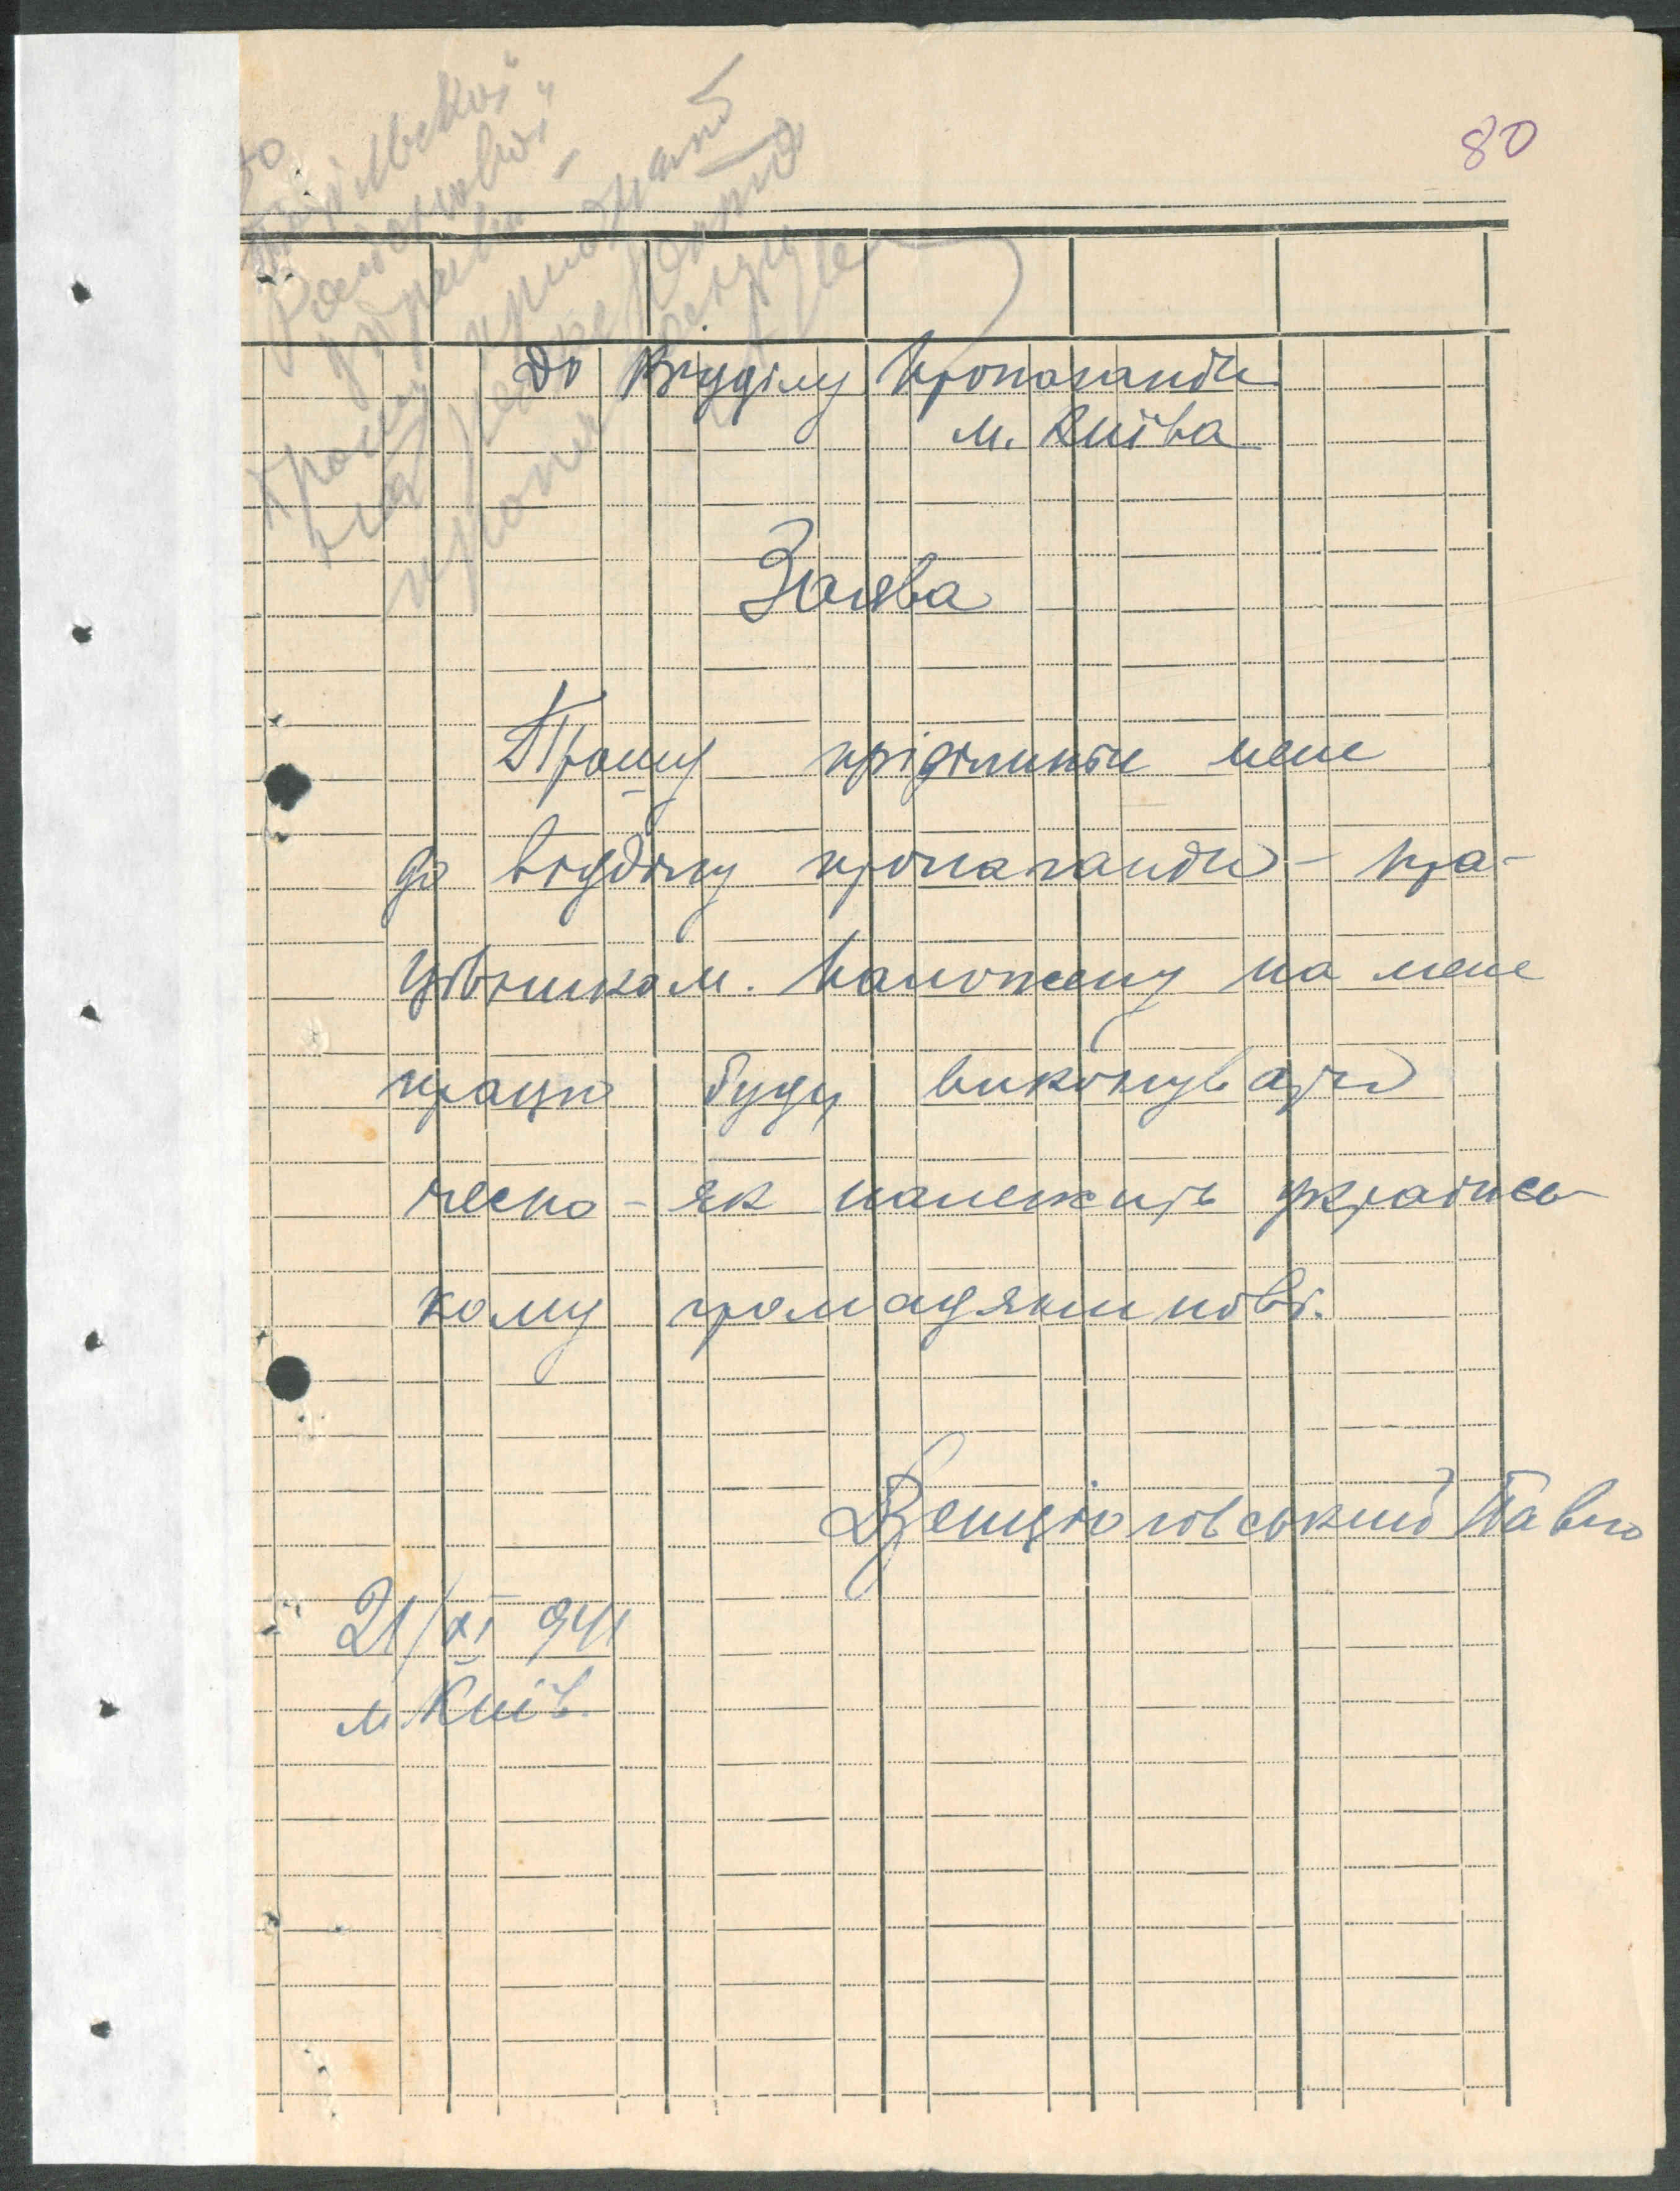 80
До
Подільської
Районової
управи
Прошу
на
До Відділу пропаганди
м. Київа
Заява
Прошу пріділити мене
до відділу пропаганди - пра-
цівником. Наложену на мене
працю буду виконувати
чесно - як належить українсь-
кому громадянинові.
Венцюговський Павло
21/XI 941
м. Київ.